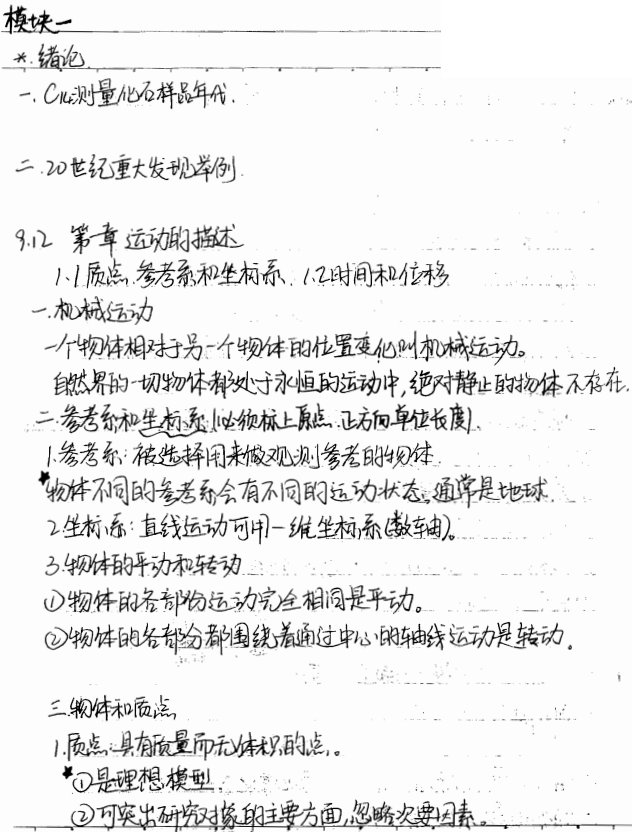 模块一
*.绪论
一.C14测量化石样品年代.
二.20世纪重大发现举例.
9.12 第一章 运动的描述
1.1质点.参考系和坐标系. 1.2时间和位移
一.机械运动
一个物体相对于另一个物体的位置变化叫机械运动。
自然界的一切物体都处于永恒的运动中,绝对静止的物体不存在.
二.参考系和坐标系(必须标上原点.正方向单位长度).
1.参考系:被选择用来做观测参考的物体.
★物体不同的参考系会有不同的运动状态。通常是地球.
2.坐标系:直线运动可用一维坐标系(数轴)。
3.物体的平动和转动
①物体的各部份运动完全相同是平动。
②物体的各部分都围绕着通过中心的轴线运动是转动。
三.物体和质点
1.质点:具有质量而无体积的点。
★①是理想模型.
②可突出研究对象的主要方面,忽略次要因素.